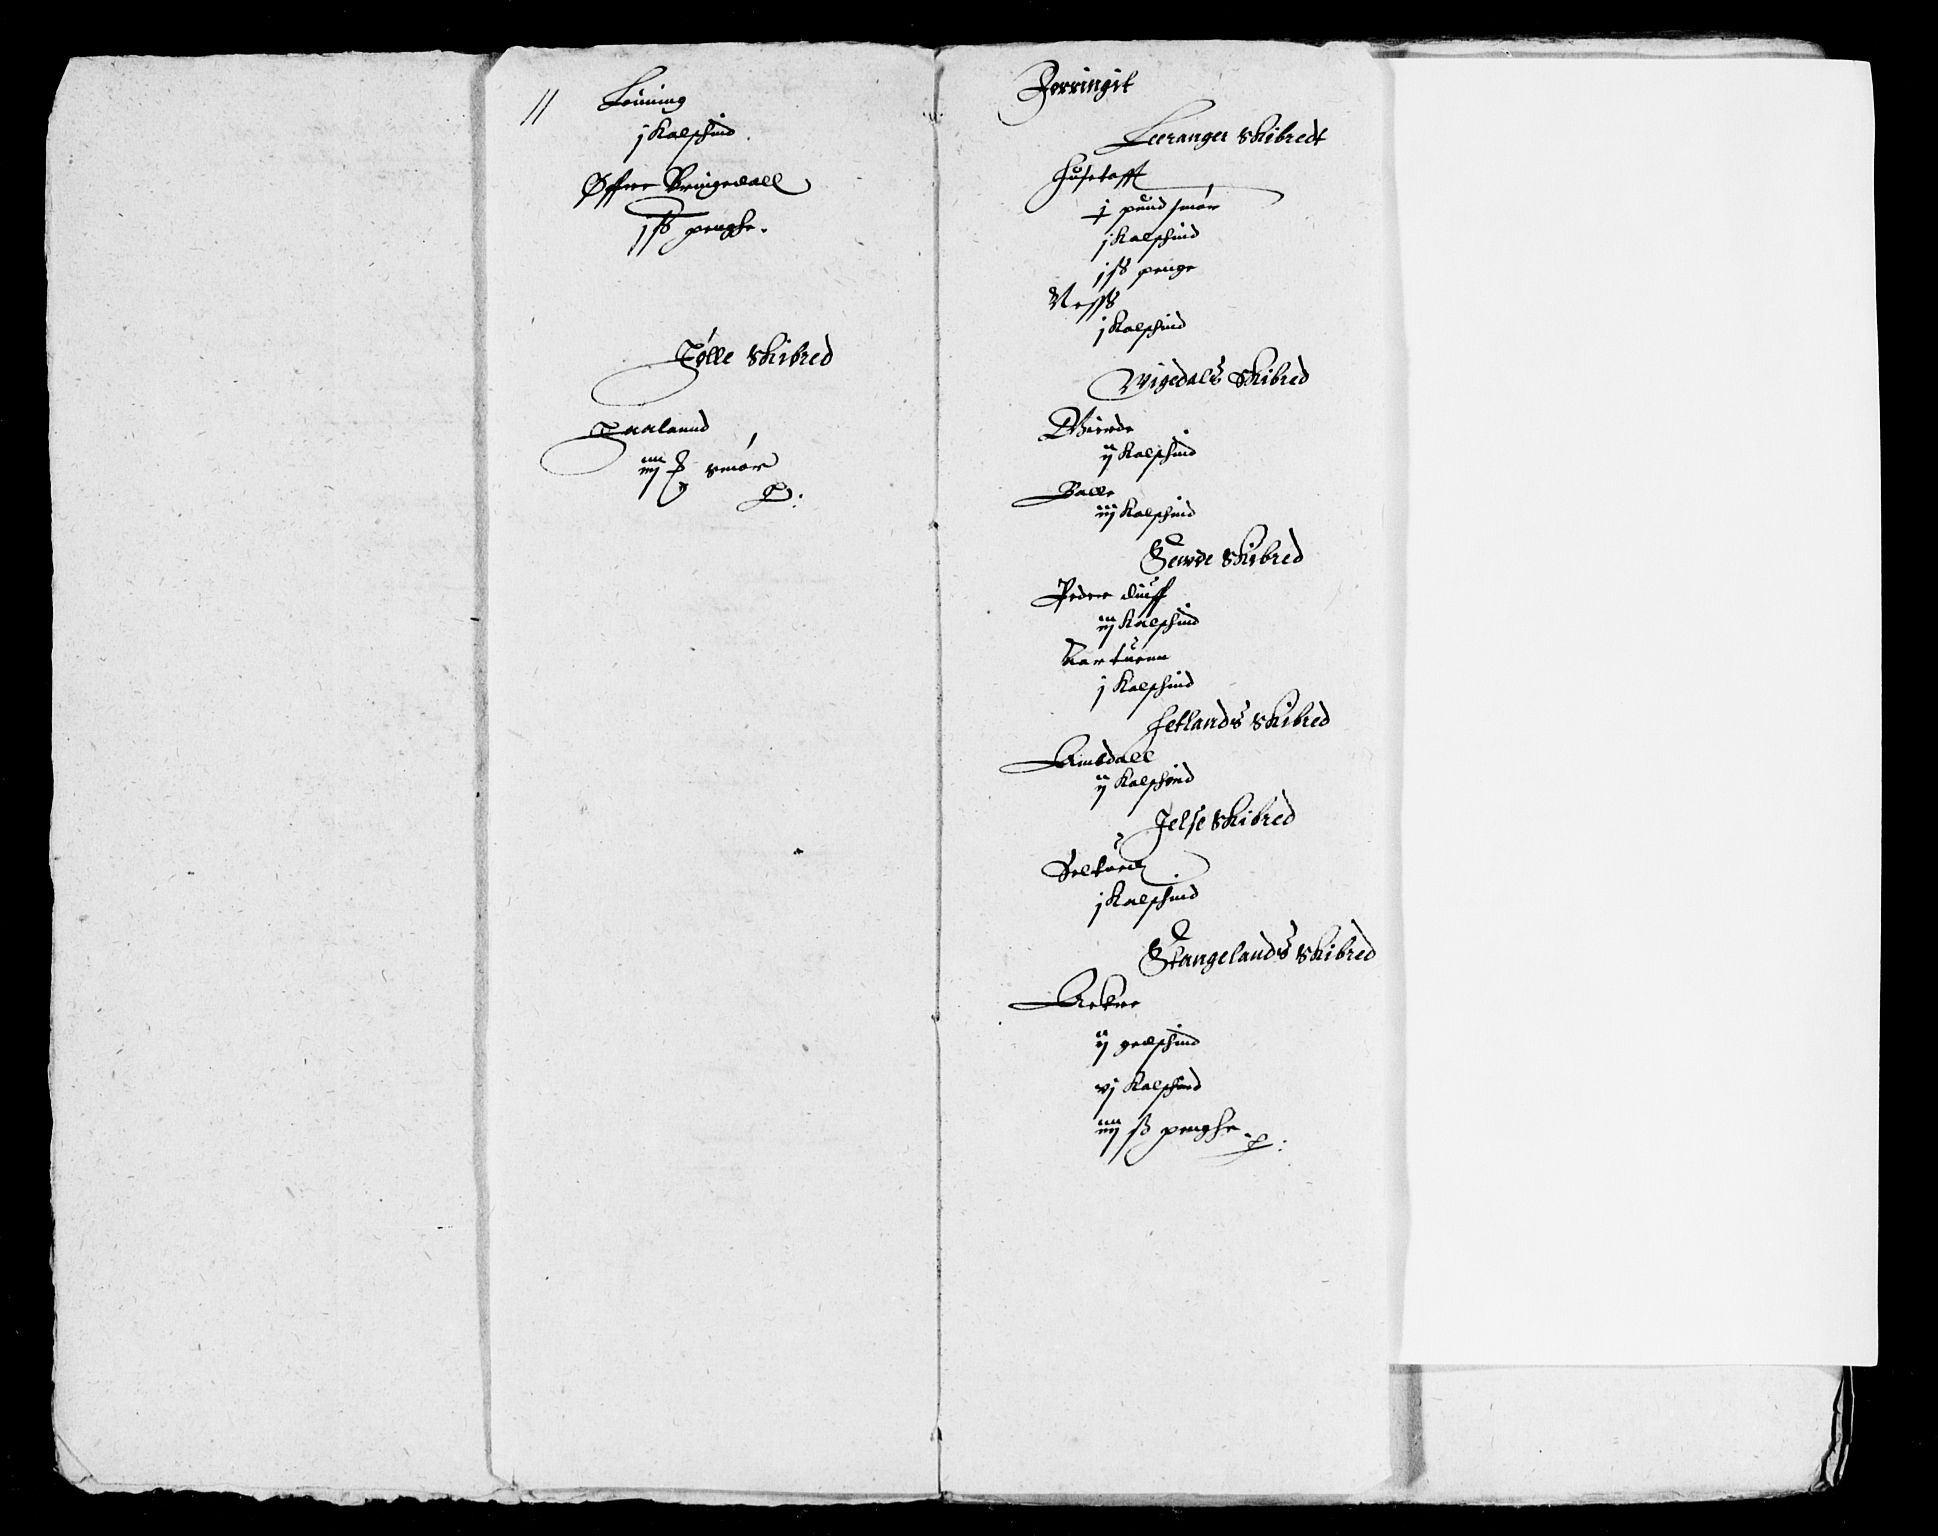 Lening
j Kalfskind
Øffre Bringedall
j ß penghe.
Tølle Skibred
Taaland
iiij smør
Ferringit
Leeranger Skibredt
Husetofft
j pund smør
j Kalfskind
j ß penge
Neſs
j Kalfskind
Wigedals Skibred
ij Kalfskind
Balle
iij Kalfskind
Sewde Skibred
Peder
iij Kalfskind
j Kalfskind
Hetlands Skibred
Amdall
ij Kalfskind
Jelse Skibred
j Kalfskind
Stangelands Skibred
ij gedskind
vj Kalfskind
iiij ß penghe